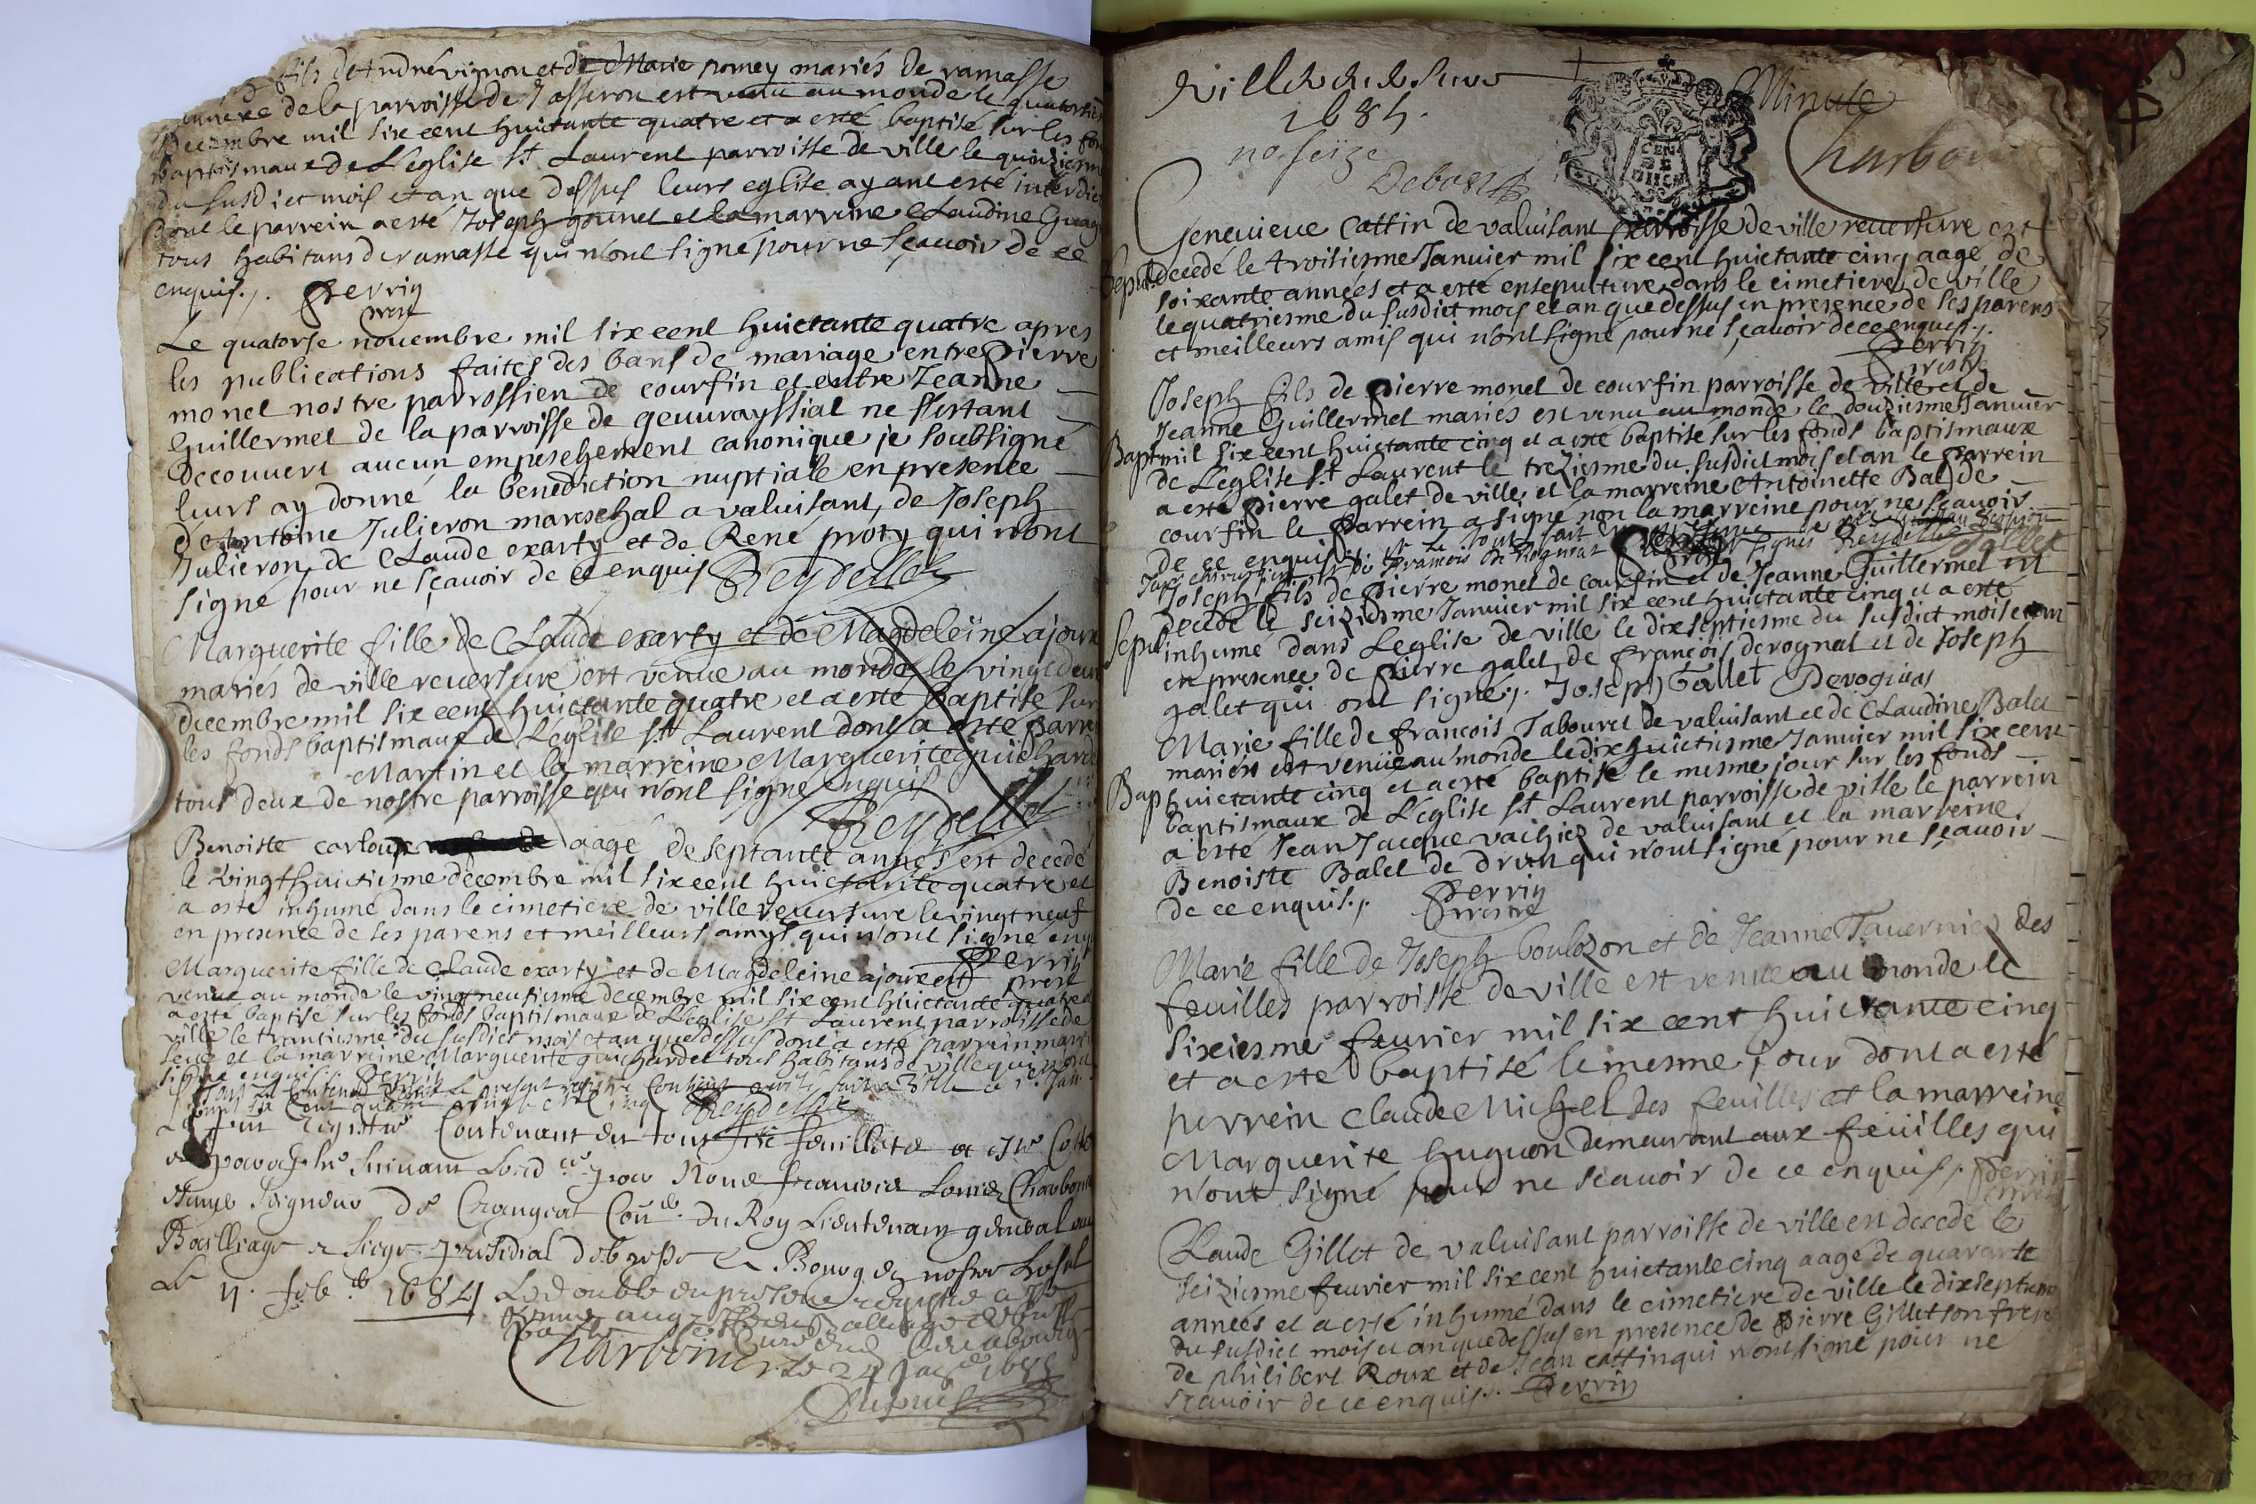 fils de André vignon et de Marie pomey mariés de ramasse
annexe de la parroisse de Jasseron est venu au monde le quatorsie
Decembre mil six cent huictante quatre et a esté baptisé sur les fon
baptismaux de L'eglise St Laurent parroisse de ville le quinziesm
du susdict mois et an que dessus leurs eglise ayant esté interdic
dont le parrein a esté Joseph gounet et la marreine Claudine
tous habitans de ramasse qui n'ont signé pour ne sçavoir de ce
enquis. Perrin
prest
Le quatorse novembre mil six cent huictante quatre apres
les publications faites des bans de mariage entre Pierre
monet nostre parrossien de courfin et entre Jeanne
Guillermet de la parroisse de geuvrayssiat ne s'estant
decouvert aucun empeschement canonique je soubsigné
leurs ay donné la benediction nuptiale en presence
de Antoine Julieron mareschal a valuisant, de Joseph
Julieron de Claude exarty et de René proty qui n'ont
signé pour ne sçavoir de ce enquis Reydellet
Marguerite fille de Claude exarty et de Magdeleine ajoure
mariés de ville reversure est venue au monde le vingt deux
decembre mil six cent huictante quatre et a esté baptisé sur
les fonds baptismaux de L'eglise St Laurent dont a esté parre
Martin et la marreine Marguerite guichard
tous deux de nostre parroisse qui n'ont signé enquis
Reydellet
Benoiste carloup aagé de septante années est decedé
le vingthuictiesme decembre mil six cent huictante quatre et
a esté inhumé dans le cimetiere de ville reversure le vingt neuf
en presence de ses parens et meilleurs amys qui n'ont signé enq
Perrin
Marguerite fille de Claude exarty et de Magdeleine ajoure est prest
venue au monde le vingt neufiesme decembre mil six cent huictante quatre et
a esté baptisé sur les fonds baptismaux de L'eglise St Laurent parroisse de
ville le trantiesme du susdict mois et an que dessus dont a esté parrein marti
et la marreine Marguerite guichardet tous habitans de ville qui n'ont
signé enquis Perrin
Reydellet
Le present registre Contenant en tout six feuilletz a esté Cotté
et paraphé suivant Lord par Nous françois Louis Charbonni
Seigneur de Crangeat Con.er du Roy Lieutenant general au
Bailliage et siege presidial de bresse a Bourg en nostre hostel
Le 11. feb.er 1684 Le double du present registre a esté
Charbonnier Le 24 Jan 1685
Dupuis
Ville reversure Minute
1685. Charbon
no. seize
Debost
GEN DE
Genevieve Cattin de valuisant parroisse de ville reversure est
Sepul decedé le troisiesme Janvier mil six cent huictante cinq aagé de
soixante années et a esté ensepulturé dans le cimetiere de ville
le quatriesme du susdict mois et an que dessus en presence de ses parens
et meilleurs amis qui n'ont signé pour ne sçavoir de ce enquis.
Perrin
prestre
Joseph fils de Pierre monet de courfin parroisse de ville et de
Jeanne Guillermet mariés est venu au monde le douziesme Janvier
Bapt mil six cent huictante cinq et a esté baptisé sur les fonds baptismaux
de L'eglise St Laurent le treziesme du susdict mois et an le parrein
a esté Pierre galet de ville et la marreine Antoinette Bal de
courfin le parrein a signé non la marreine pour ne sçavoir
de ce enquis.
Reydellet
Joseph fils de Pierre monet de courfin et de Jeanne Guillermet est
decedé le seiziesme Janvier mil six cent huictante cinq et a esté
Sepul inhumé dans L'eglise de ville le dixseptiesme du susdict mois et an
en presence de Pierre galet, de françois derognat et de Joseph
galet qui ont signé. Joseph Gallet Derognat
Marie fille de françois Tabouret de valuisant et de Claudine Balet
mariés est venue au monde le dixhuictiesme Janvier mil six cent
Bap huictante cinq et a esté baptisé le mesme jour sur les fonds
baptismaux de L'eglise St Laurent parroisse de ville le parrein
a esté Jean Jacque vaihiez de valuisant et la marreine
Benoiste Balet de drom qui n'ont signé pour ne sçavoir
de ce enquis. Perrin
prestre
Marie fille de Joseph boulozon et de Jeanne Tavernier des
feuilles parroisse de ville est venue au monde le
sixiesme fevrier mil six cent huictante cinq
et a esté baptisé le mesme jour dont a esté
perrein Claude Michel des feuilles et la marreine
Marguerite huguon demeurant aux feuilles qui
n'ont signé pour ne scavoir de ce enquis. Perrin
Claude Gillet de valuisant parroisse de ville est decedé le
seiziesme fevrier mil six cent huictante cinq aagé de quarante
années et a esté inhumé dans le cimetiere de ville le dixseptiesme
du susdict mois et an que dessus en presence de Pierre Gillet son frere
de philibert Roux et de Jean cattin qui n'ont signé pour ne
scavoir de ce enquis. Perrin